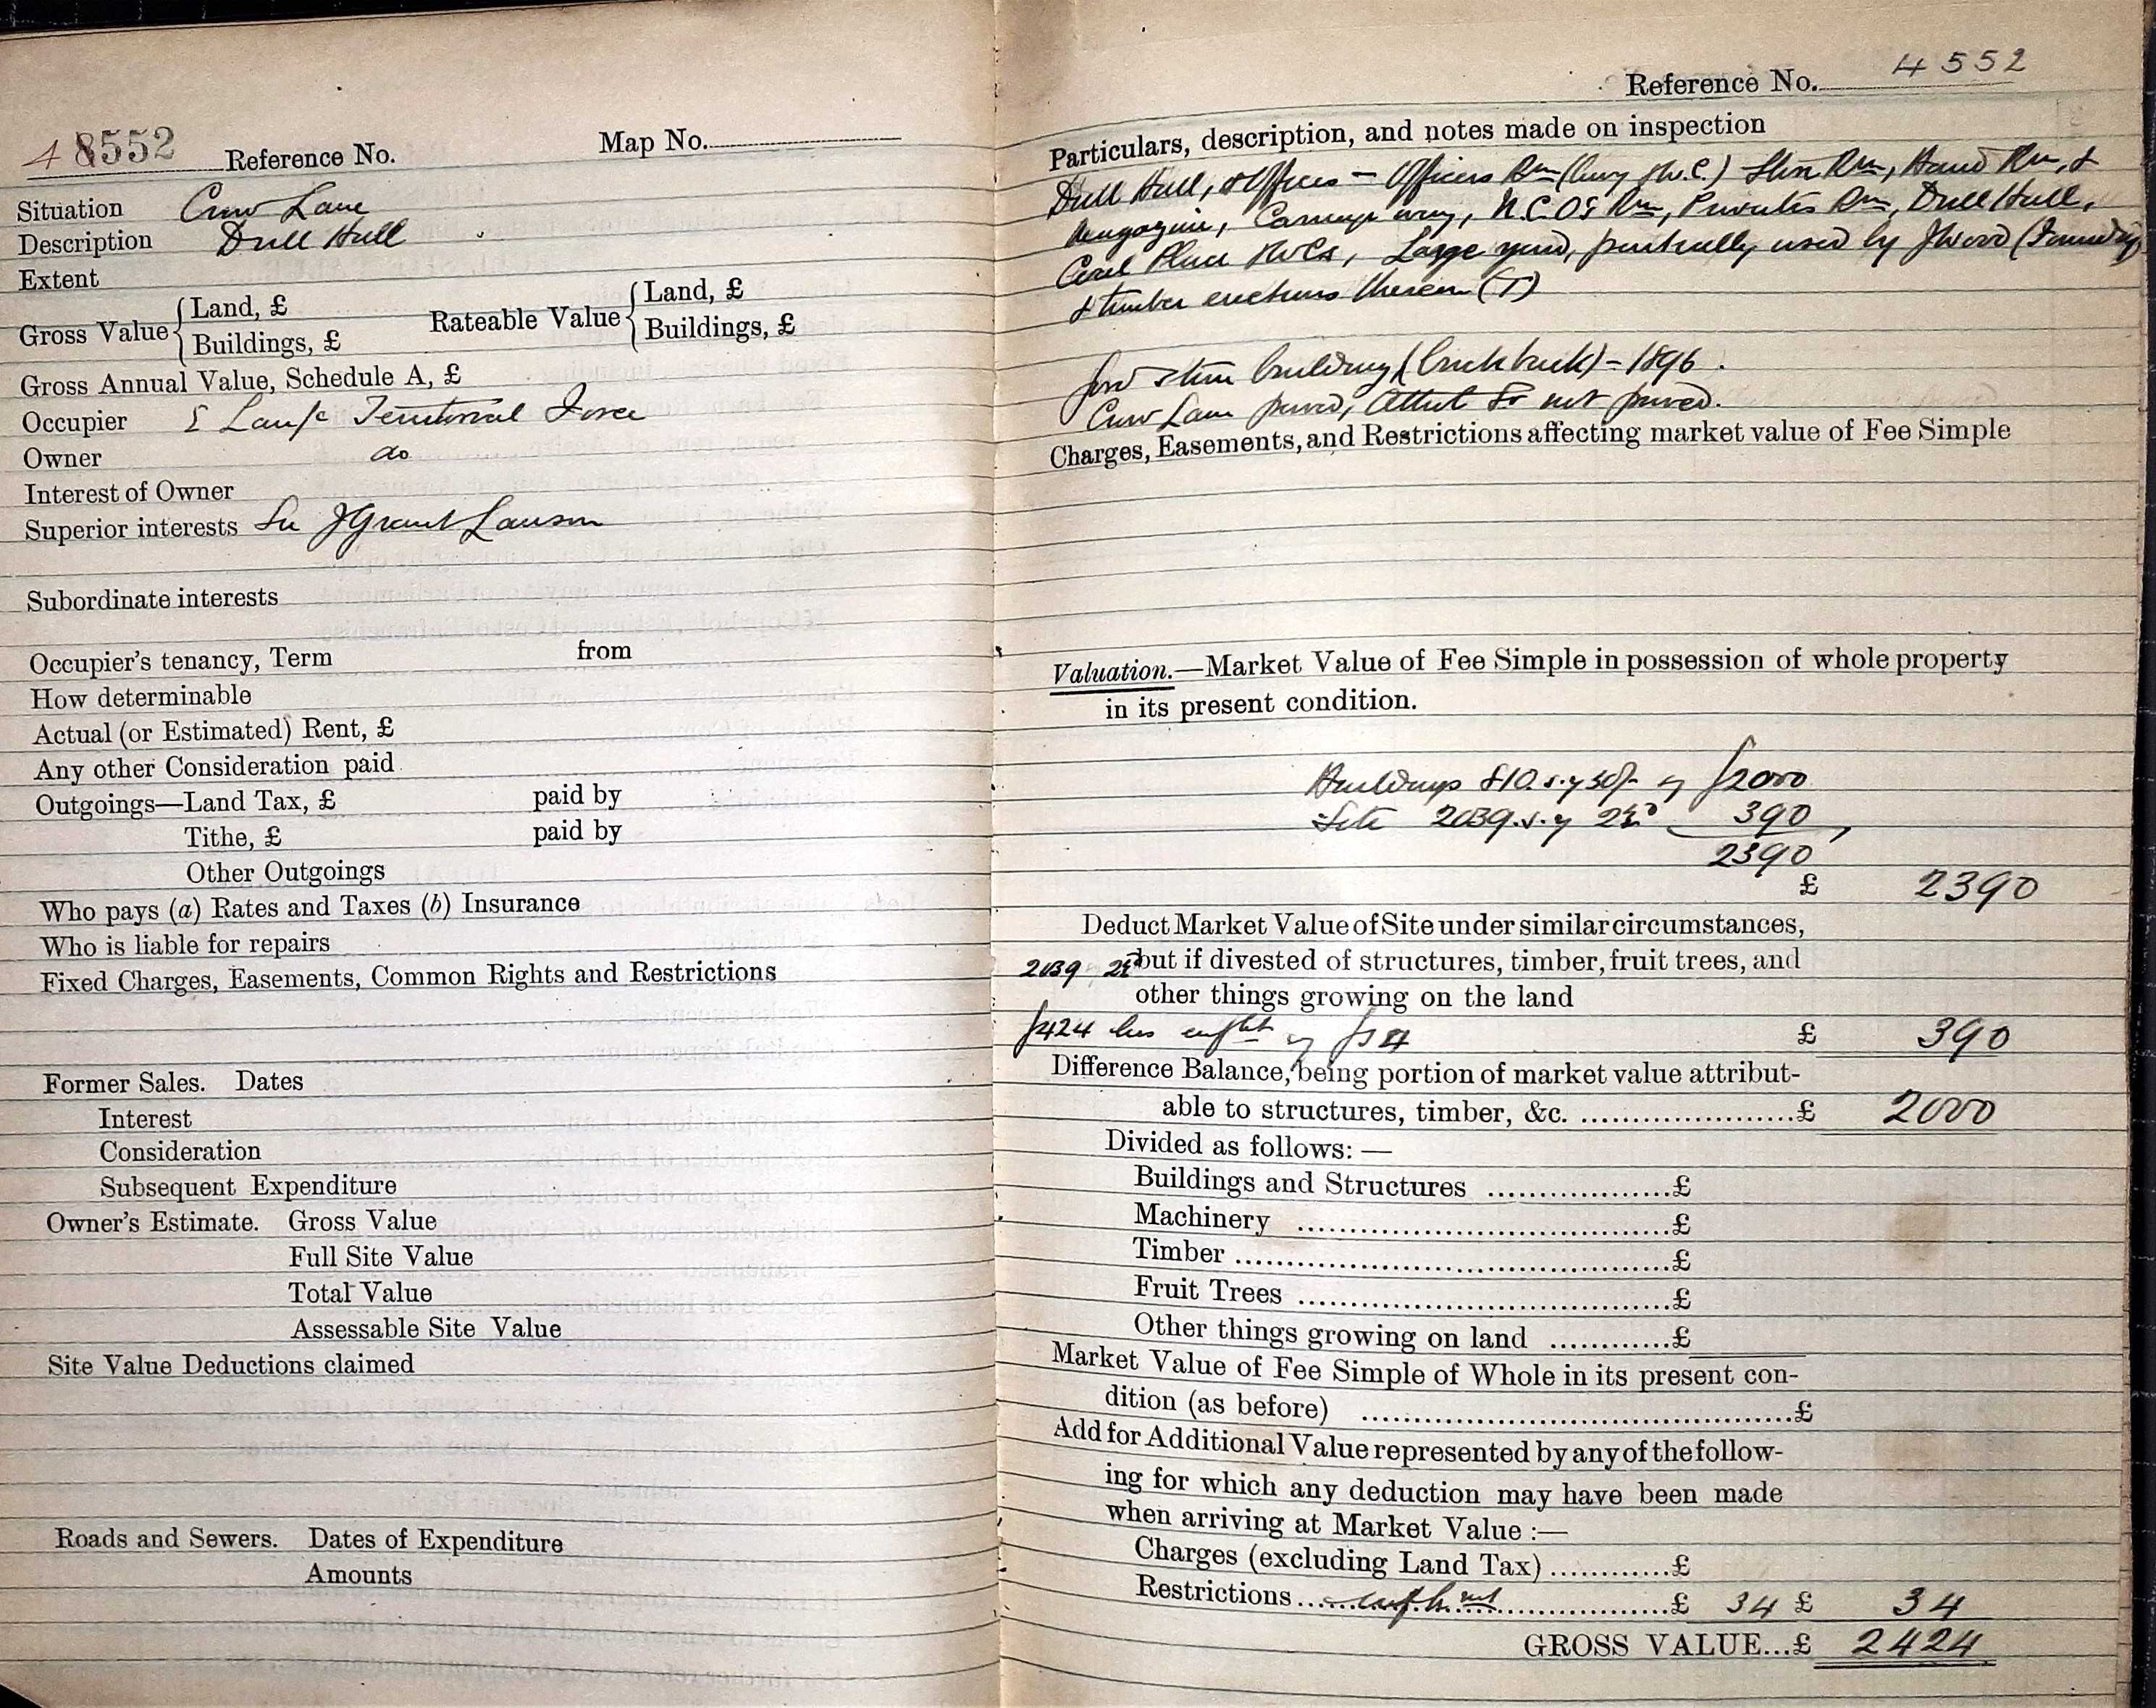 4 8552 Reference No. Map No.
Situation Crow Lane
Description Drill Hall
Extent
Gross Value { Land, £ Rateable Value { Land, £
Buildings, £ Buildings, £
Gross Annual Value, Schedule A, £
Occupier E Lancs Territorial Force
Owner do
Interest of Owner
Superior interests Sir J Grant Lawson
Subordinate interests
Occupier's tenancy, Term from
How determinable
Actual (or Estimated) Rent, £
Any other Consideration paid
Outgoings—Land Tax, £ paid by
Tithe, £ paid by
Other Outgoings
Who pays (a) Rates and Taxes (b) Insurance
Who is liable for repairs
Fixed Charges, Easements, Common Rights and Restrictions
Former Sales. Dates
Interest
Consideration
Subsequent Expenditure
Owner's Estimate. Gross Value
Full Site Value
Total Value
Assessable Site Value
Site Value Deductions claimed
Roads and Sewers. Dates of Expenditure
Amounts
Reference No. 4552
Particulars, description, and notes made on inspection
Drill Hall, & Offices – Officers Rm (lavy & W.C.) Store Rm, Band Rm, &
Magazine, Carriage way, N.C.Os Rm, Privates Rm, Drill Hall,
Coal Place & WCs, Large yard, partially used by J Wood (Foundry)
& timber erections thereon (T)
Good stone building (brick back) – 1896.
Crow Lane paved, Albert St not paved.
Charges, Easements, and Restrictions affecting market value of Fee Simple
Valuation.—Market Value of Fee Simple in possession of whole property
in its present condition.
Buildings 810 s.y 50/- £2000
Site 2039 s.y 390
2390
£ 2390
Deduct Market Value of Site under similar circumstances,
2039 but if divested of structures, timber, fruit trees, and
other things growing on the land
£424 less £34 £ 390
Difference Balance, being portion of market value attribut-
able to structures, timber, &c. ....................£ 2000
Divided as follows:—
Buildings and Structures ..................£
Machinery ....................................£
Timber ..........................................£
Fruit Trees .....................................£
Other things growing on land ............£
Market Value of Fee Simple of Whole in its present con-
dition (as before) ..........................................£
Add for Additional Value represented by any of the follow-
ing for which any deduction may have been made
when arriving at Market Value :—
Charges (excluding Land Tax) ............£
Restrictions ..................£ 34 £ 34
GROSS VALUE...£ 2424